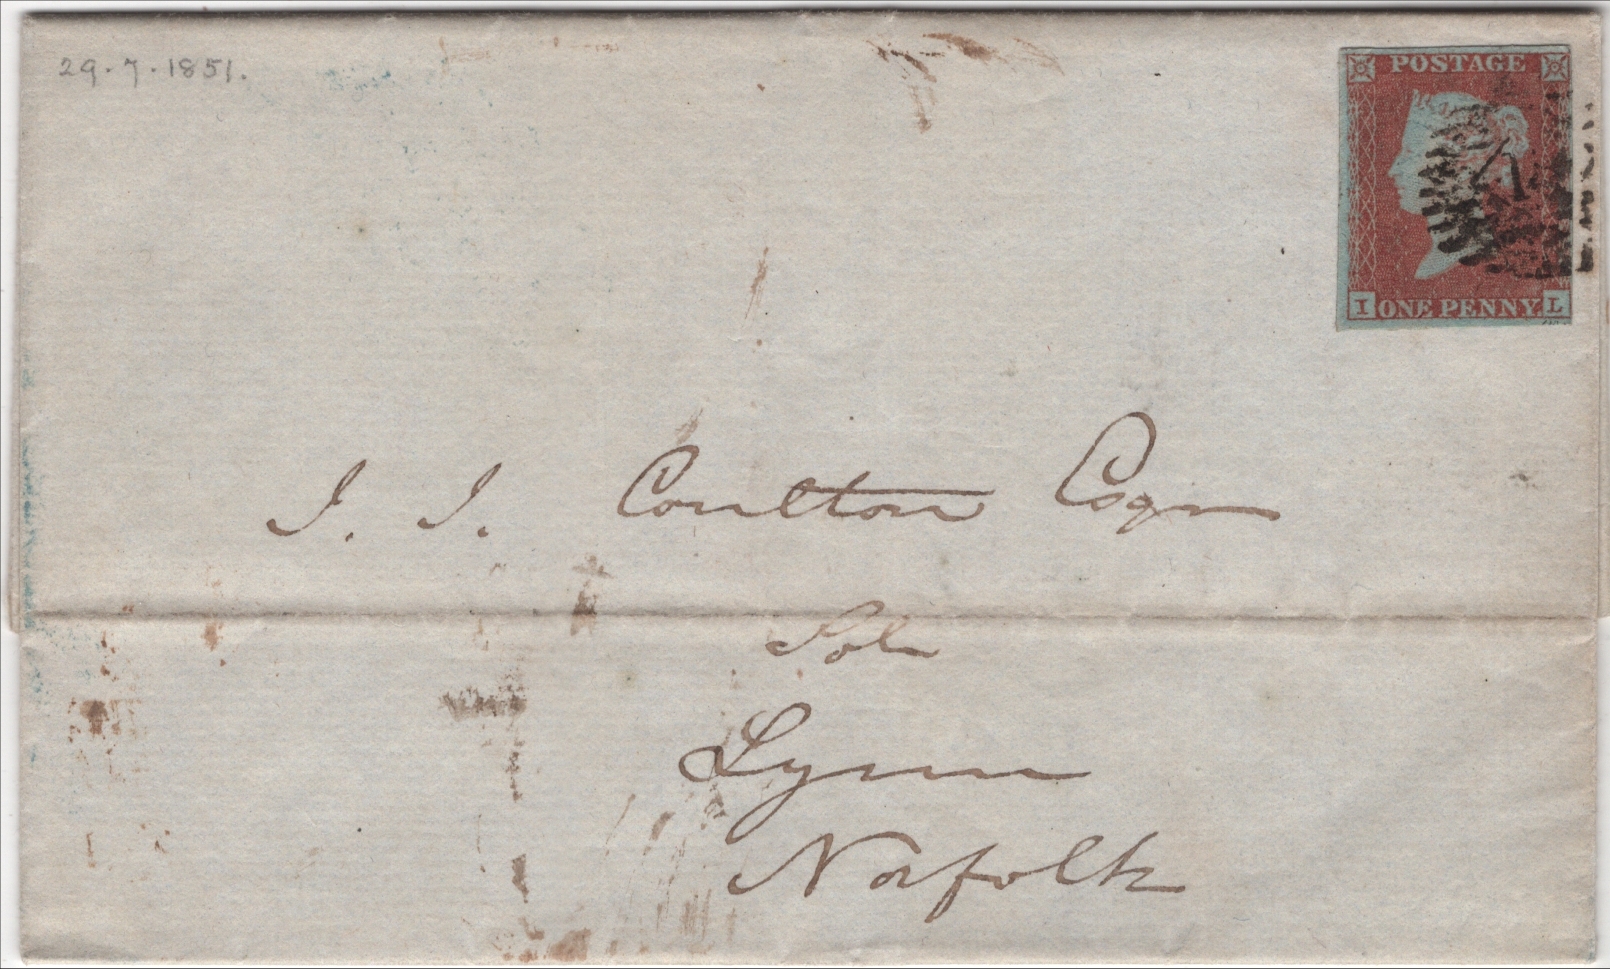 29.7.1851.
POSTAGE
I ONE PENNY L
J. J. Coulton Esqr
Solr
Lynn
Norfolk